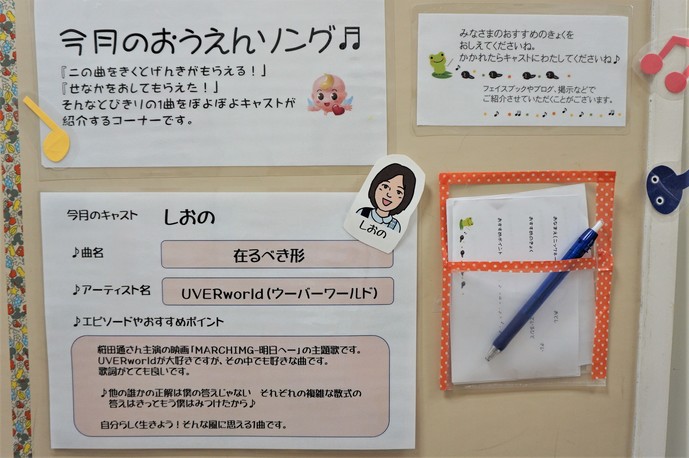 今月のおうえんソング♬
『この曲をきくとげんきがもらえる！』
『せなかをおしてもらえた！』
そんなとびきりの1曲をぽよぽよキャストが
紹介するコーナーです。
みなさまのおすすめのきょくを
おしえてくださいね。
かかれたらキャストにわたしてくださいね♪
フェイスブックやブログ、掲示などで
ご紹介させていただくことがございます。
今月のキャスト しおの
しおの
♪曲名 在るべき形
♪アーティスト名 UVERworld(ウーバーワールド)
♪エピソードやおすすめポイント
桜田通さん主演の映画「MARCHIMG-明日へ-」の主題歌です。
UVERworldが大好きですが、その中でも好きな曲です。
歌詞がとても良いです。
♪他の誰かの正解は僕の答えじゃない それぞれの複雑な数式の
答えはきってもう僕はみつけたから♪
自分らしく生きよう！そんな風に思える1曲です。